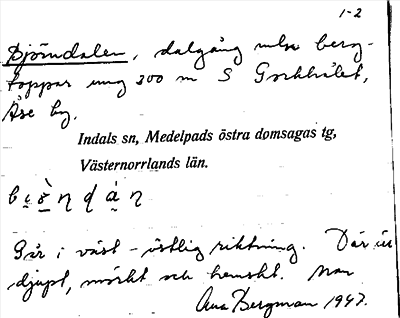 1-2
Björndalen, dalgång mlse berg-
toppar ung 300 m S
Åse by.
Indals sn, Medelpads östra domsagas tg,
Västernorrlands län.
Går i väst - östlig riktning. Där är
djupt, mörkt och hemskt. Man
Bergman 1947.